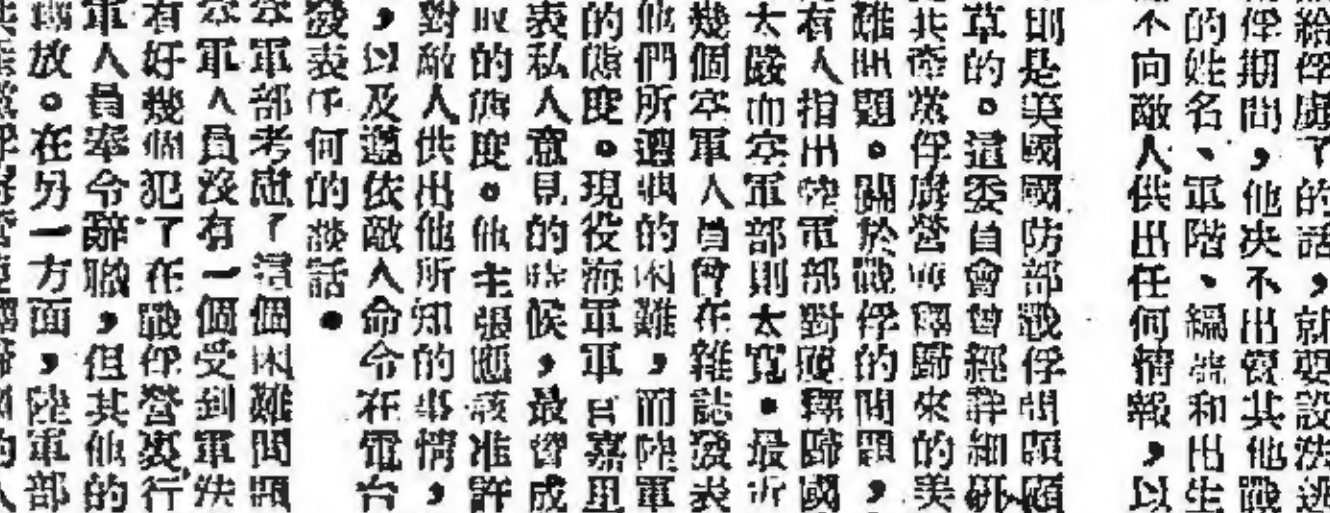 給俘虜了的話，就要設法逃
俘期間，他決不出賣其他戰
的姓名、軍階、編號和出生
不向敵人供出任何情報，以
則是美國國防部戰俘問題顧
草的。這委員會曾經詳細研
共產黨俘虜營而釋歸來的美
難題。關於戰俘的問題，
有人指出陸軍部對獲釋歸國
太嚴而空軍部則太寬。最近
幾個空軍人員曾在雜誌發表
他們所遭遇的困難，而陸軍
的態度。現役海軍軍官嘉里
表私人意見的時候，最贊成
取的態度。他主張應該准許
對敵人供出他所知的事情，
，以及遵依敵人命令在電台
發表任何的談話。
空軍部考慮了這個困難問題
空軍人員沒有一個受到軍法
有好幾個犯了在戰俘營裏行
軍人員奉令辭職，但其他的
放。在另一方面，陸軍部